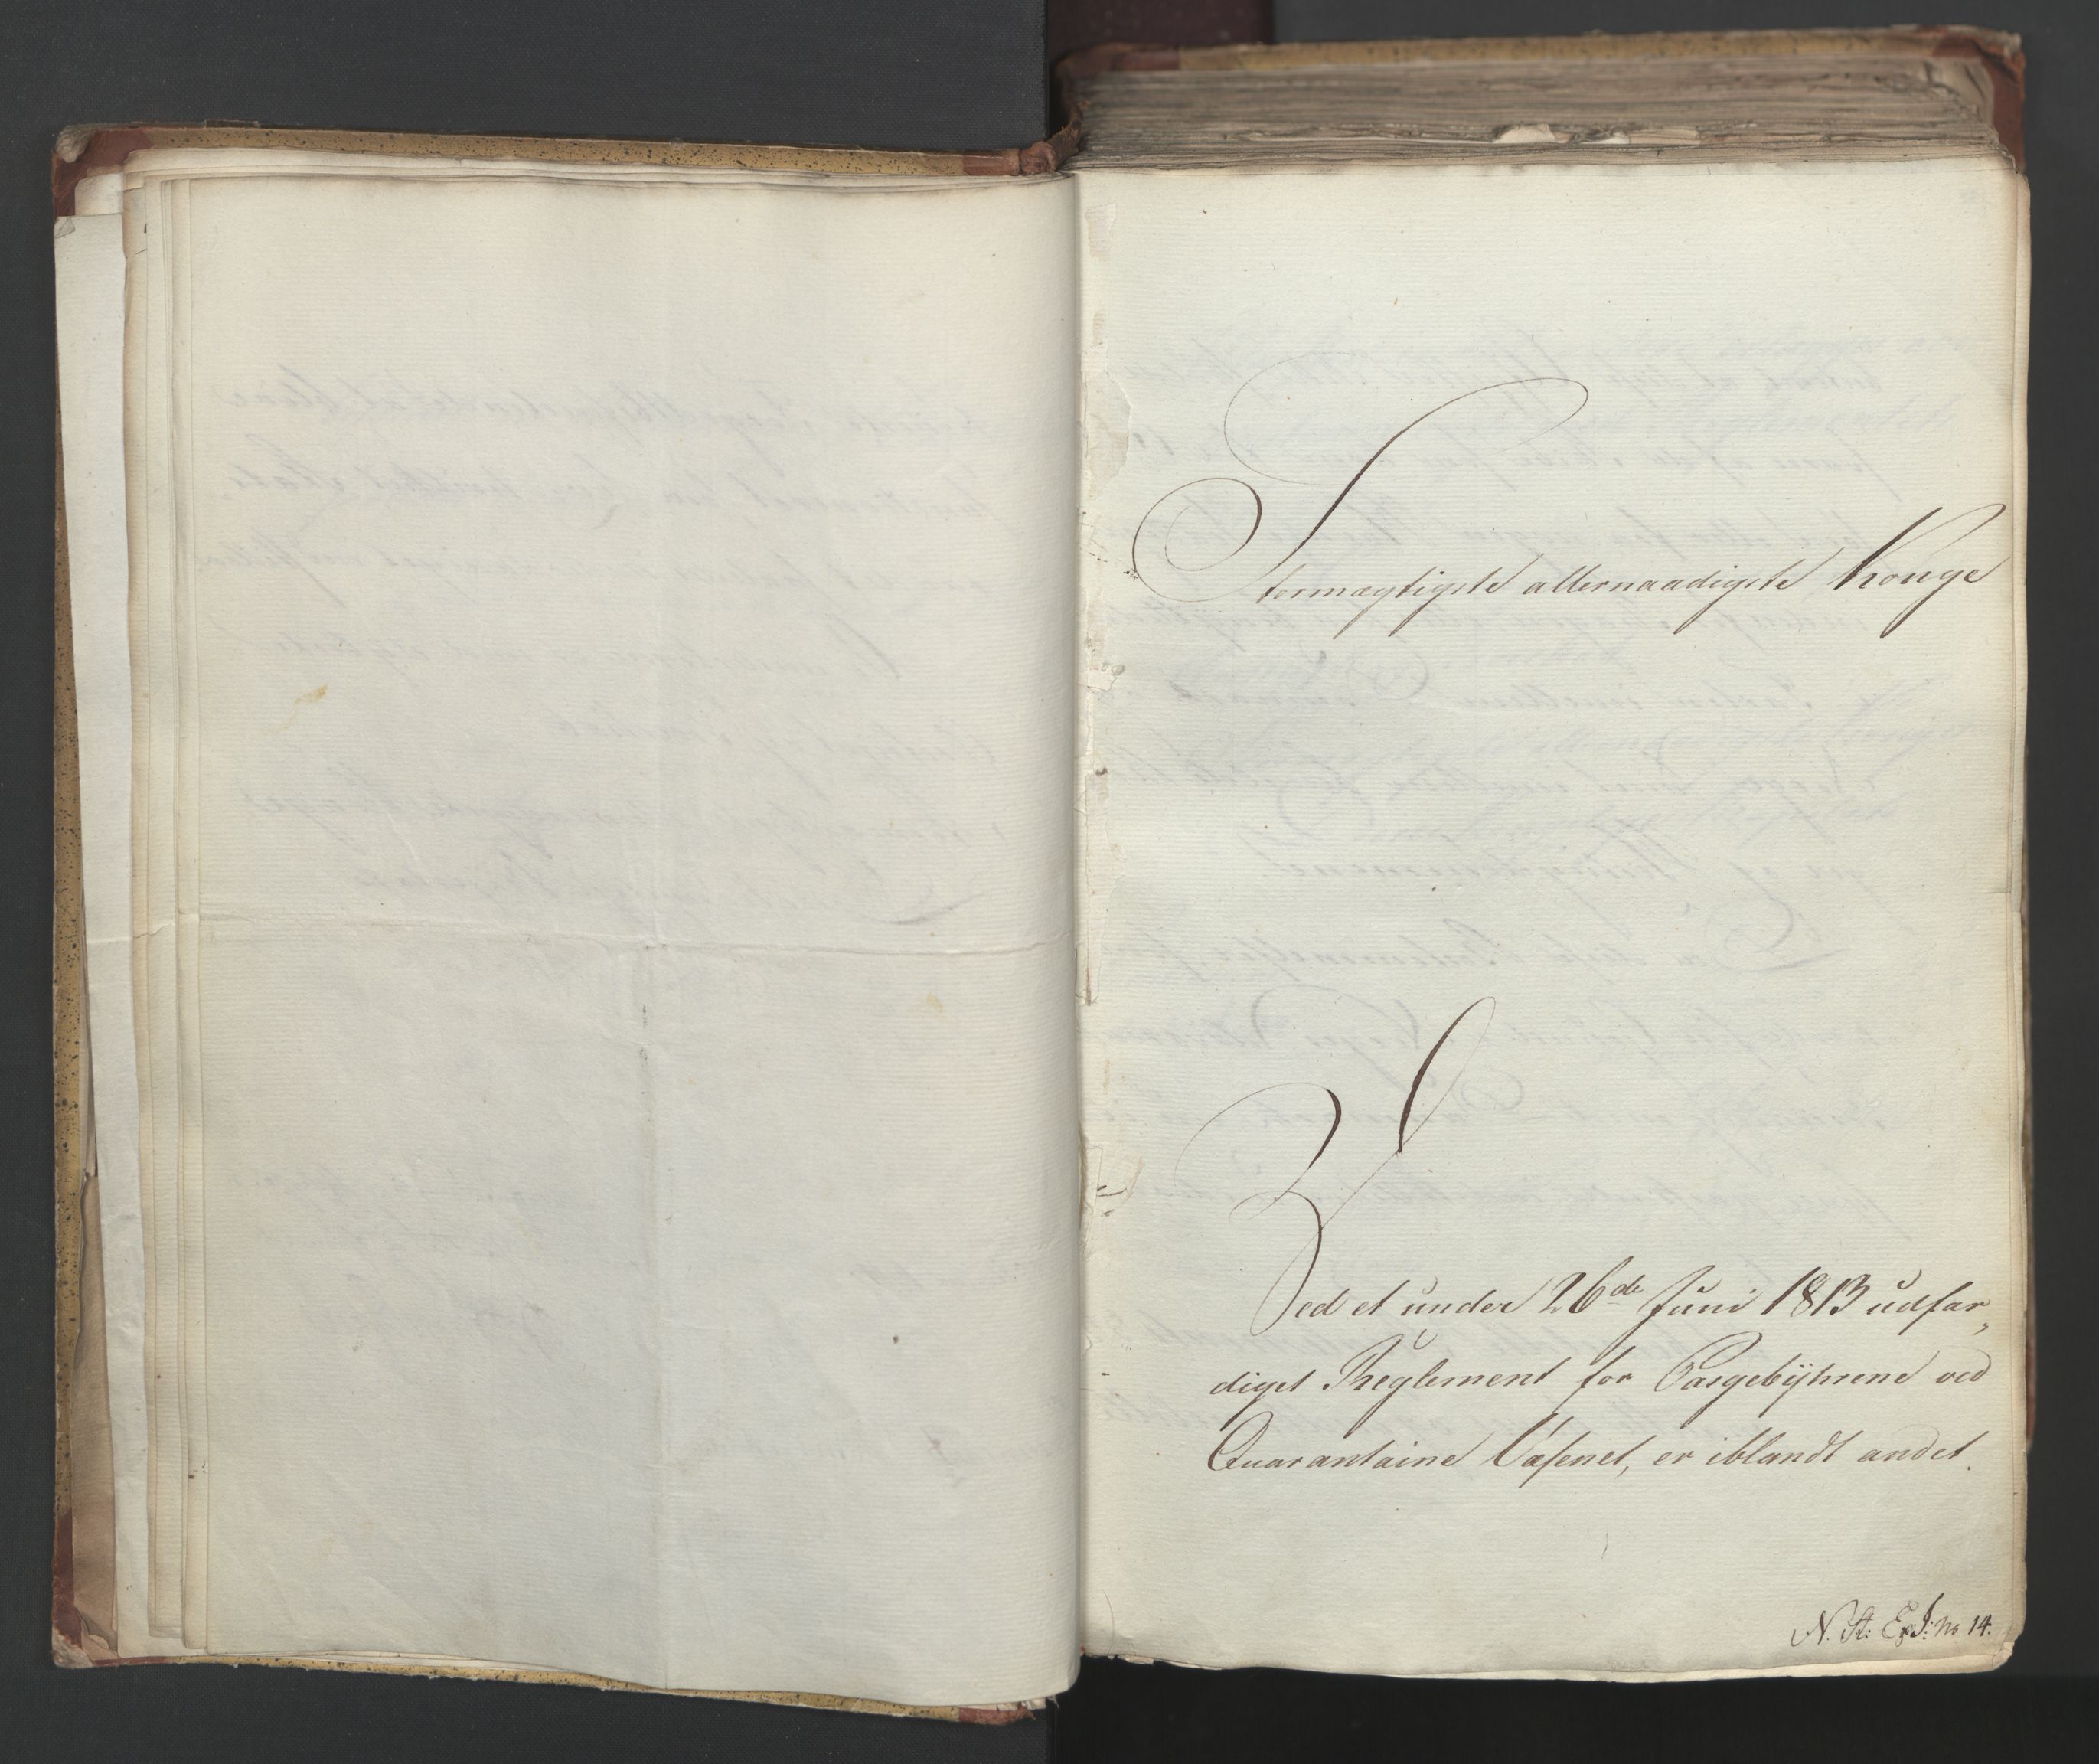 Stormægtigste allernaadigste Konge
Ved et under 26de Juni 1813 udfær„
diget Reglement for Pasgebÿhrene ved
Quarantaine Væsenet, er iblandt andet
N. St: Ex. J: No 14.